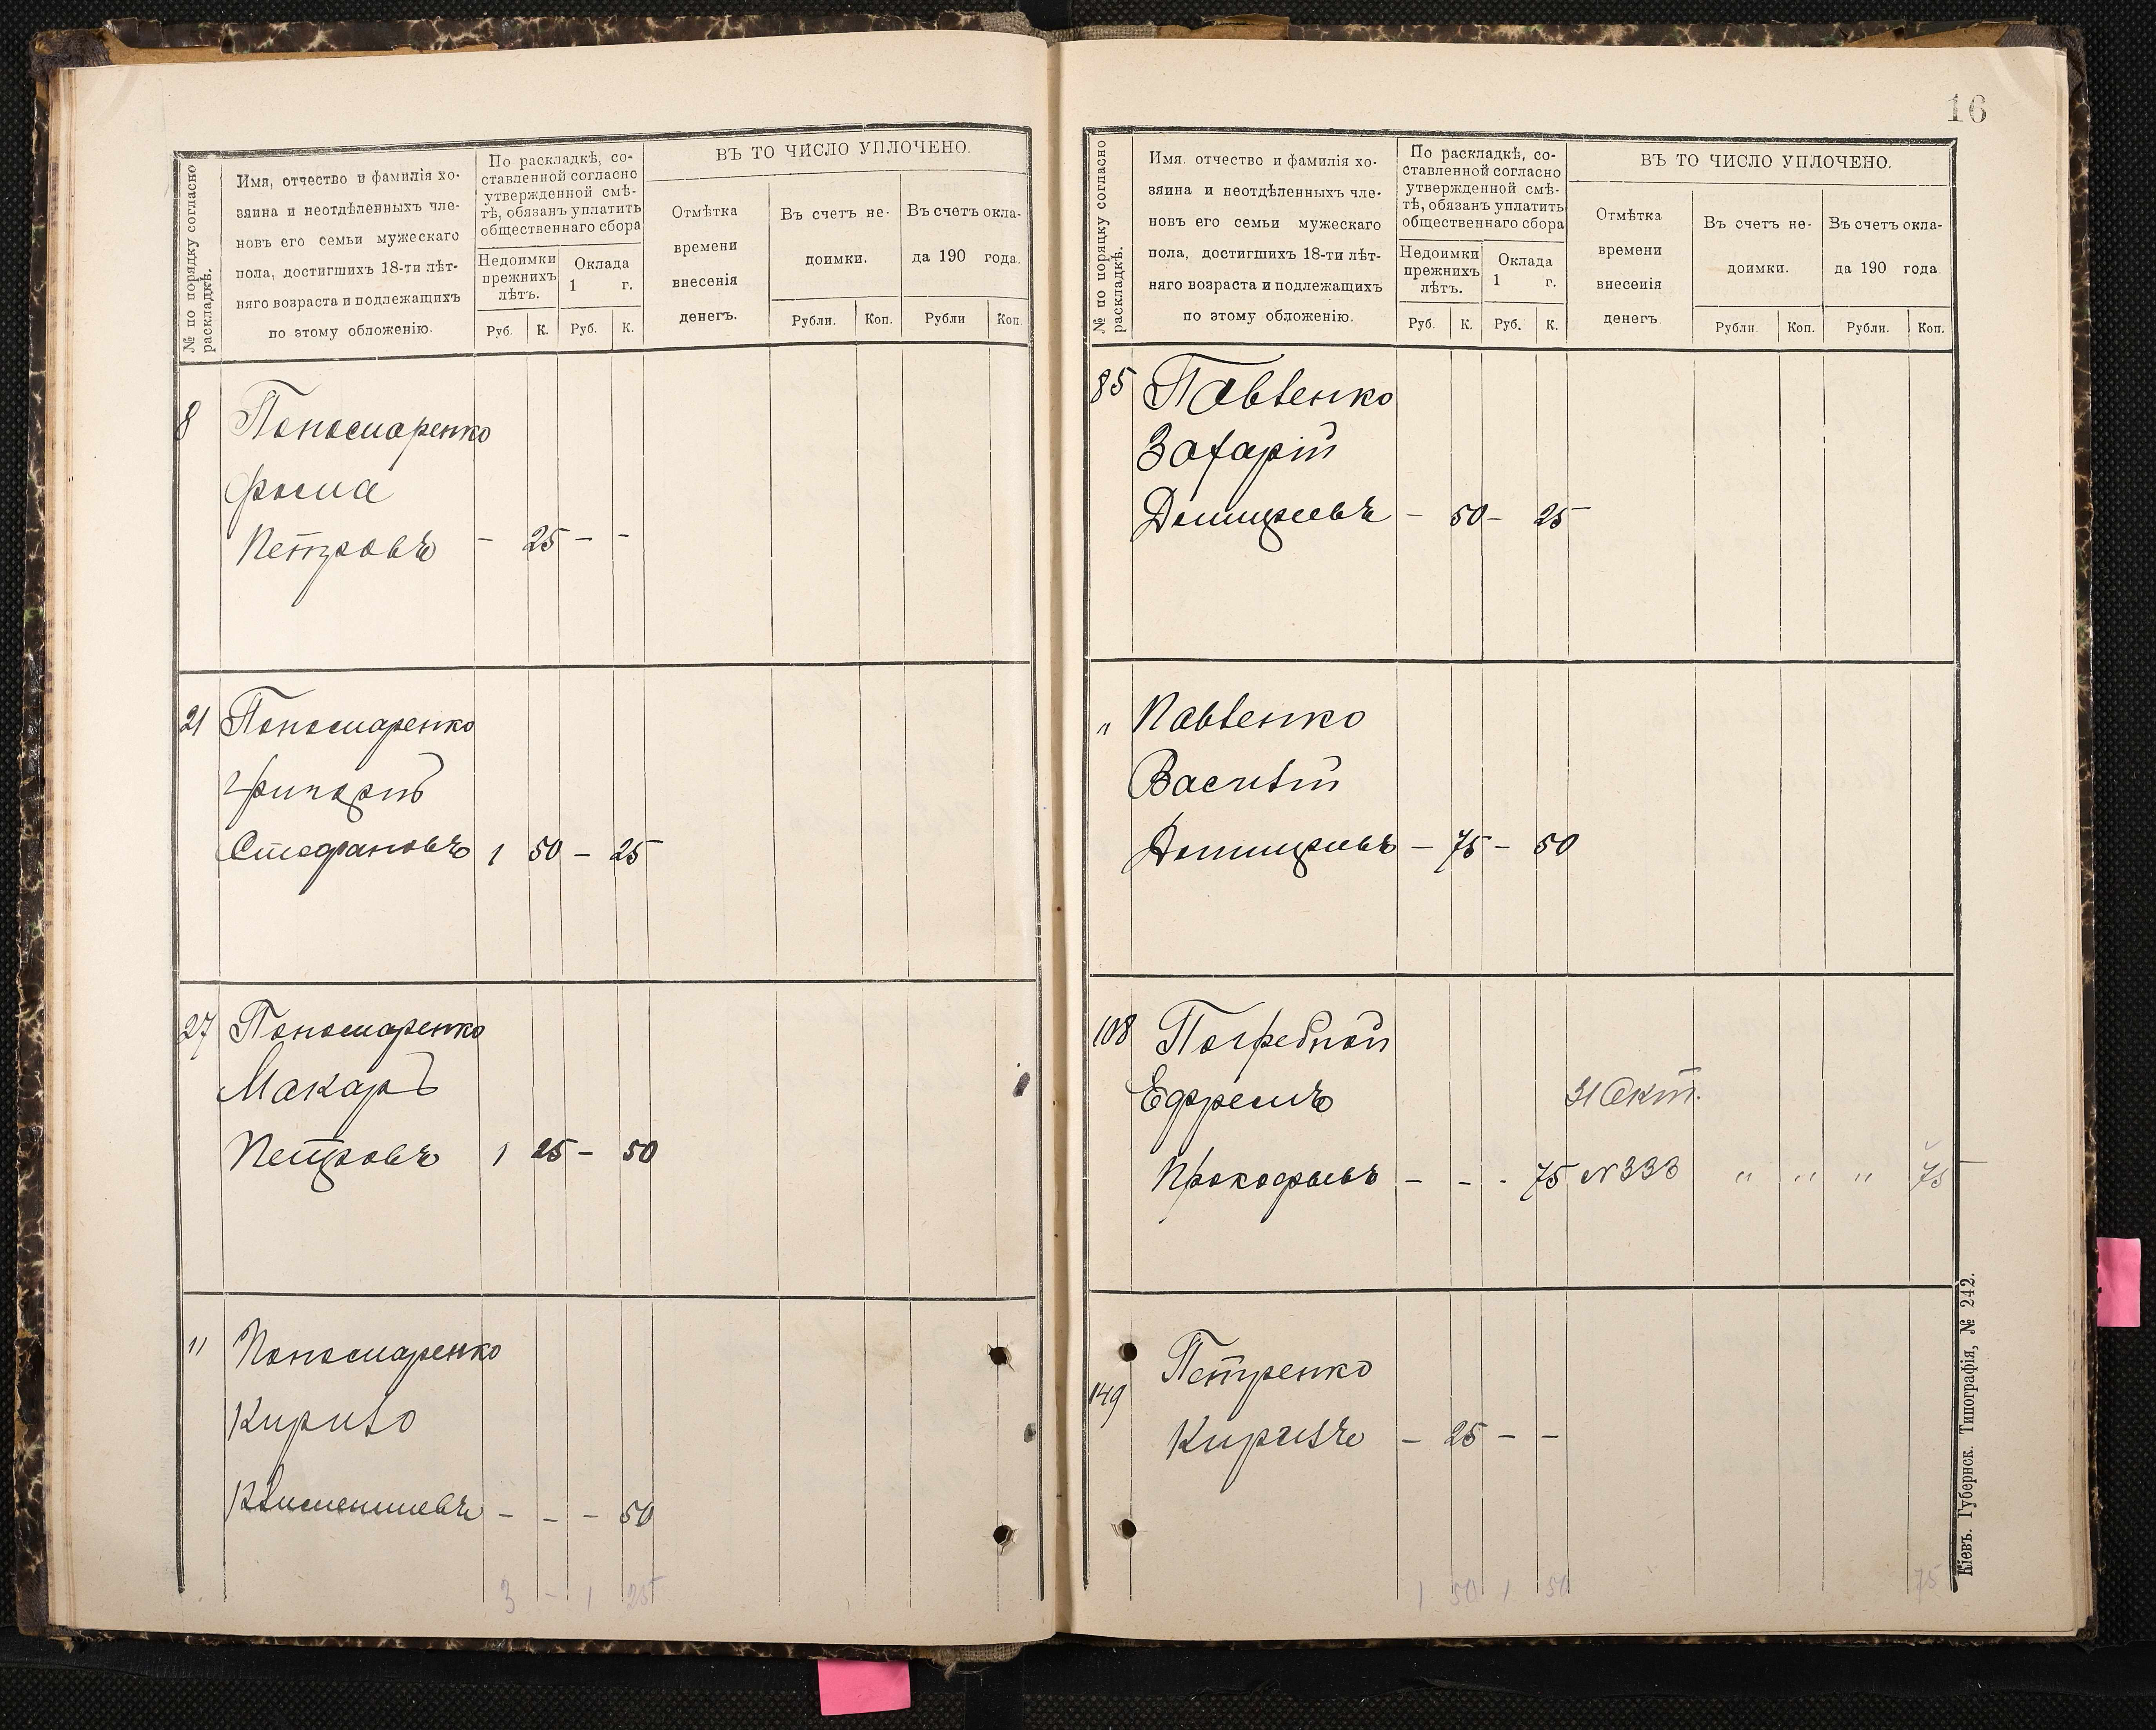 № по порядку согласно
раскладкѣ.
Имя, отчество и фамилія хо-
зяина и неотдѣленныхъ чле-
новъ его семьи мужескаго
пола, достигшихъ 18-ти лѣт-
няго возраста и подлежащихъ
по этому обложенію.
По раскладкѣ, со-
ставленной согласно
утвержденной смѣ-
тѣ, обязанъ уплатить
общественнаго сбора
Недоимки
прежнихъ
лѣтъ.
Оклада
1 г.
Руб. К. Руб. К.
ВЪ ТО ЧИСЛО УПЛОЧЕНО.
Отмѣтка
времени
внесенія
денегъ.
Въ счетъ не-
доимки.
Въ счетъ окла-
да 190 года.
Рубли. Коп. Рубли Коп.
8 Пономаренко
Фома
Петровъ - 25 - -
21 Пономаренко
Григорій
Стефановъ 1 50 - 25
27 Пономаренко
Макаръ
Петровъ 1 25 - 50
" Пономаренко
Кирило
Климентіевъ - - - 50
3 - 1 25
16
№ по порядку согласно
раскладкѣ.
Имя. отчество и фамилія хо-
зяина и неотдѣленныхъ чле-
новъ его семьи мужескаго
пола, достигшихъ 18-ти лѣт-
няго возраста и подлежащихъ
по этому обложенію.
По раскладкѣ, со-
ставленной согласно
утвержденной смѣ-
тѣ, обязанъ уплатить
общественнаго сбора
Недоимки
прежнихъ
лѣтъ.
Оклада
1 г.
Руб. К. Руб. К.
ВЪ ТО ЧИСЛО УПЛОЧЕНО.
Отмѣтка
времени
внесенія
денегъ.
Въ счетъ не-
доимки.
Въ счетъ окла-
да 190 года.
Рубли. Коп. Рубли. Коп.
85 Павленко
Захарій
- 50 - 25
" Павленко
Василій
- 75 - 50
108 Погребной
Ефремъ 31 Окт.
Прокофьевъ - - - 75 № 333 " " " 75
149 Петренко
Кирилъ - 25 - -
1 50 1 50 75
Кіевъ. Губернск. Типографія, № 242.